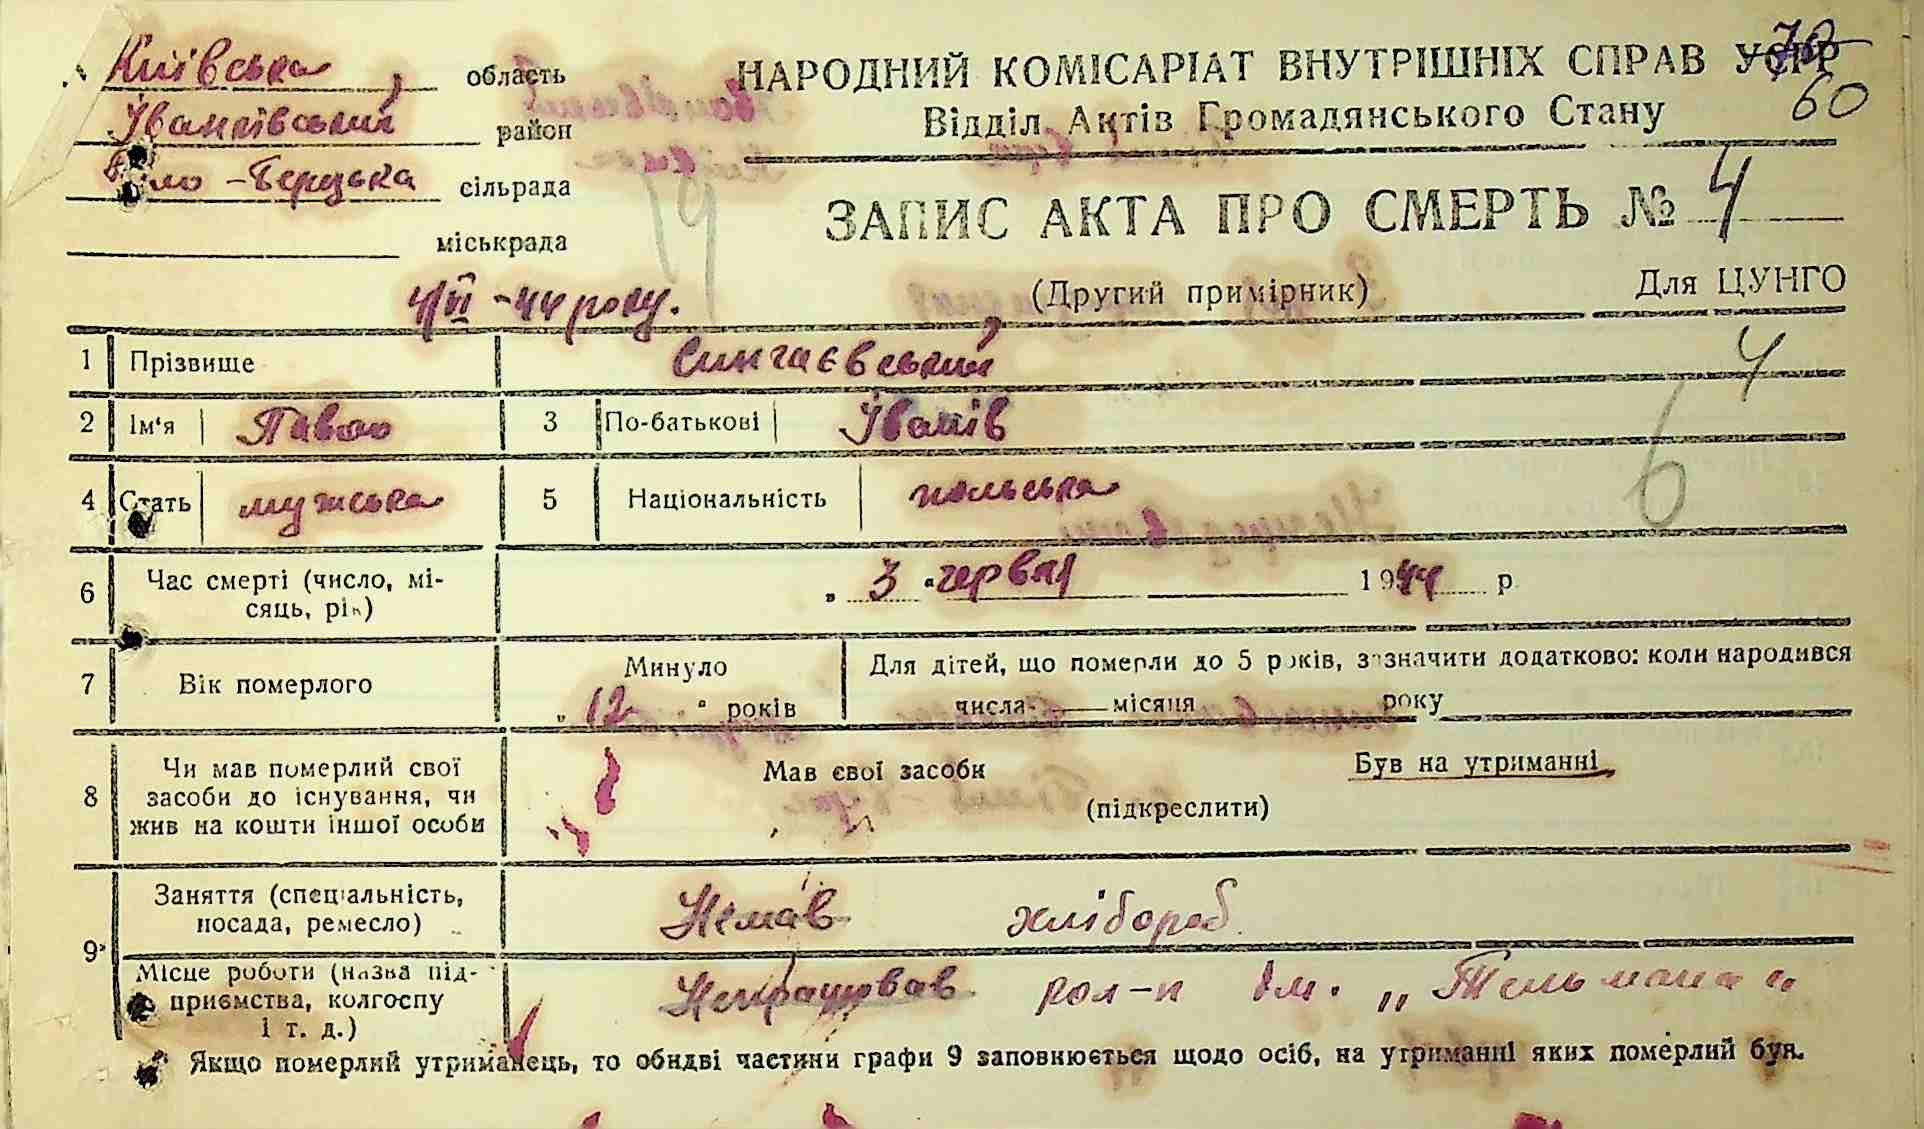 Київська область
Іванківський район
сільрада
міськрада
НАРОДНИЙ КОМІСАРІАТ ВНУТРІШНІХ СПРАВ УСРР
70
60
Відділ Актів Громадянського Стану
ЗАПИС АКТА ПРО СМЕРТЬ № 4
4/VI -44 року.
(Другий примірник)
Для ЦУНГО
19
1 Прізвище Сингаєвський
4
2 Ім'я Павло 3 По-батькові Іванів
6
4 Стать мужська 5 Національність польська
6 Час смерті (число, мі-
сяць, рік)
„ 3 " червня 1944 р.
7 Вік померлого
Минуло
„ 12 " років
Для дітей, що померли до 5 років, зазначити додатково: коли народився
числа — місяця року
8 Чи мав померлий свої
засоби до існування, чи
жив на кошти іншої особи
Мав свої засоби Був на утриманні
(підкреслити)
9 Заняття (спеціальність,
посада, ремесло)
Немав хлібороб
Місце роботи (назва під-
приємства, колгоспу
і т. д.)
Непрацював кол-п ім. „Тельмана"
Якщо померлий утриманець, то обидві частини графи 9 заповнюється щодо осіб, на утриманні яких померлий був.